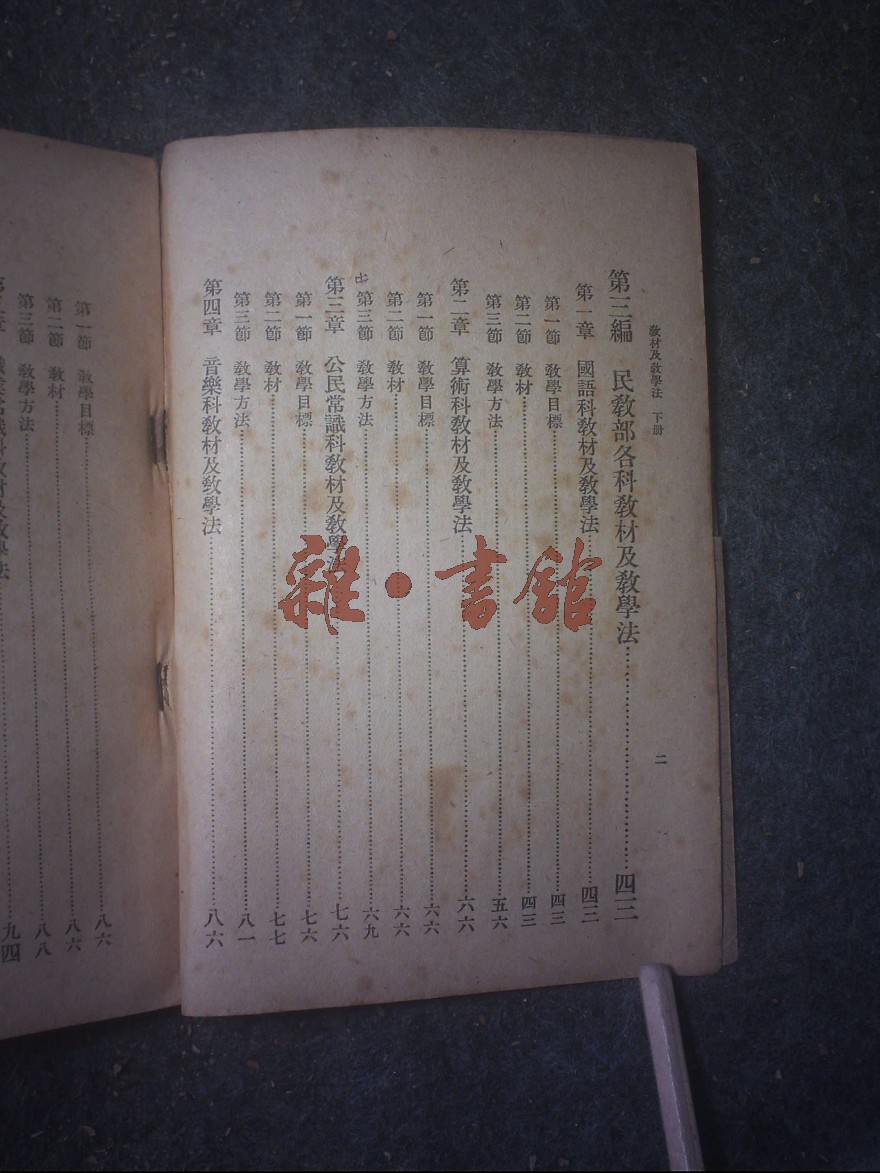 教材及教學法　下册
二
第三編　民教部各科教材及教學法……四三
第一章　國語科教材及教學法……四三
第一節　教學目標……四三
第二節　教材……四三
第三節　教學方法……五六
第二章　算術科教材及教學法……六六
第一節　教學目標……六六
第二節　教材……六六
第三節　教學方法……六九
第三章　公民常識科教材及教學法……七六
第一節　教學目標……七六
第二節　教材……七七
第三節　教學方法……八一
第四章　音樂科教材及教學法……八六
第一節　教學目標……八六
第二節　教材……八六
第三節　教學方法……八八
常識科教材及教學法……九四
雜·書館